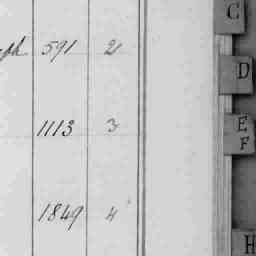 ph 591 2
1113 3
1849 4
C
D
E
F
H